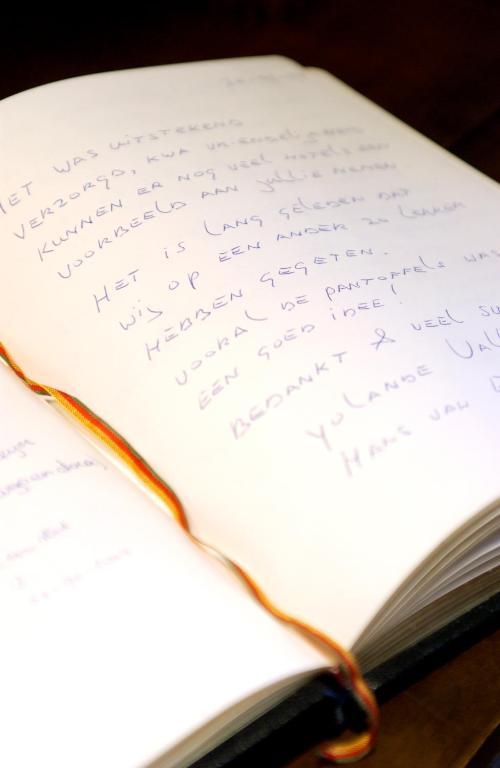 HET WAS UITSTEKEND
VERZORGD, KWA VRIENDELIJKHEID
KUNNEN ER NOG VEEL HOTELS EEN
VOORBEELD AAN jullie NEMEN
HET is LANG GELEDEN DAT
wij op EEN ANDER zo LEKKER
HEBBEN GEGETEN.
VOORAL DE PANTOFFELS WAS
EEN GOED IDEE!
BEDANKT & VEEL SU
YOLANDE VAL
HANS VAN D